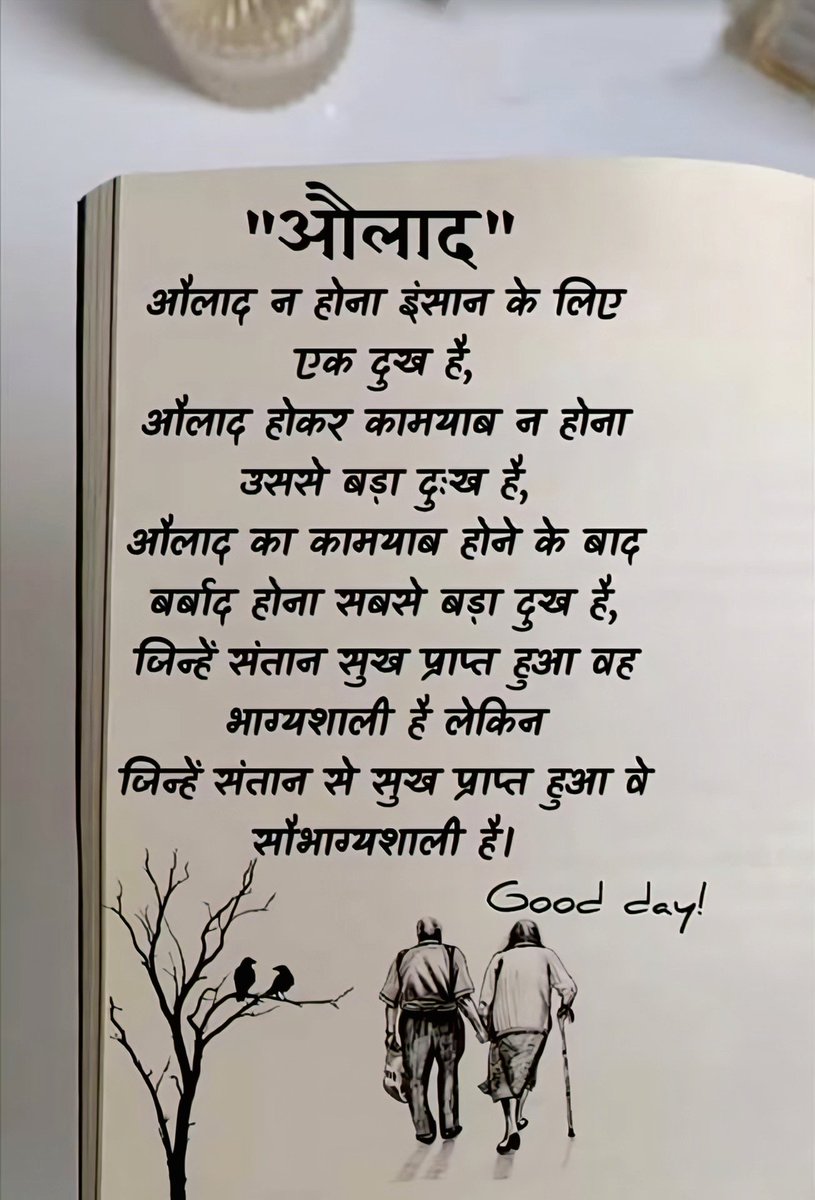 "औलाद"
औलाद न होना इंसान के लिए
एक दुख है,
औलाद होकर कामयाब न होना
उससे बड़ा दुःख है,
औलाद का कामयाब होने के बाद
बर्बाद होना सबसे बड़ा दुख है,
जिन्हें संतान सुख प्राप्त हुआ वह
भाग्यशाली है लेकिन
जिन्हें संतान से सुख प्राप्त हुआ वे
सौभाग्यशाली है।
Good day!